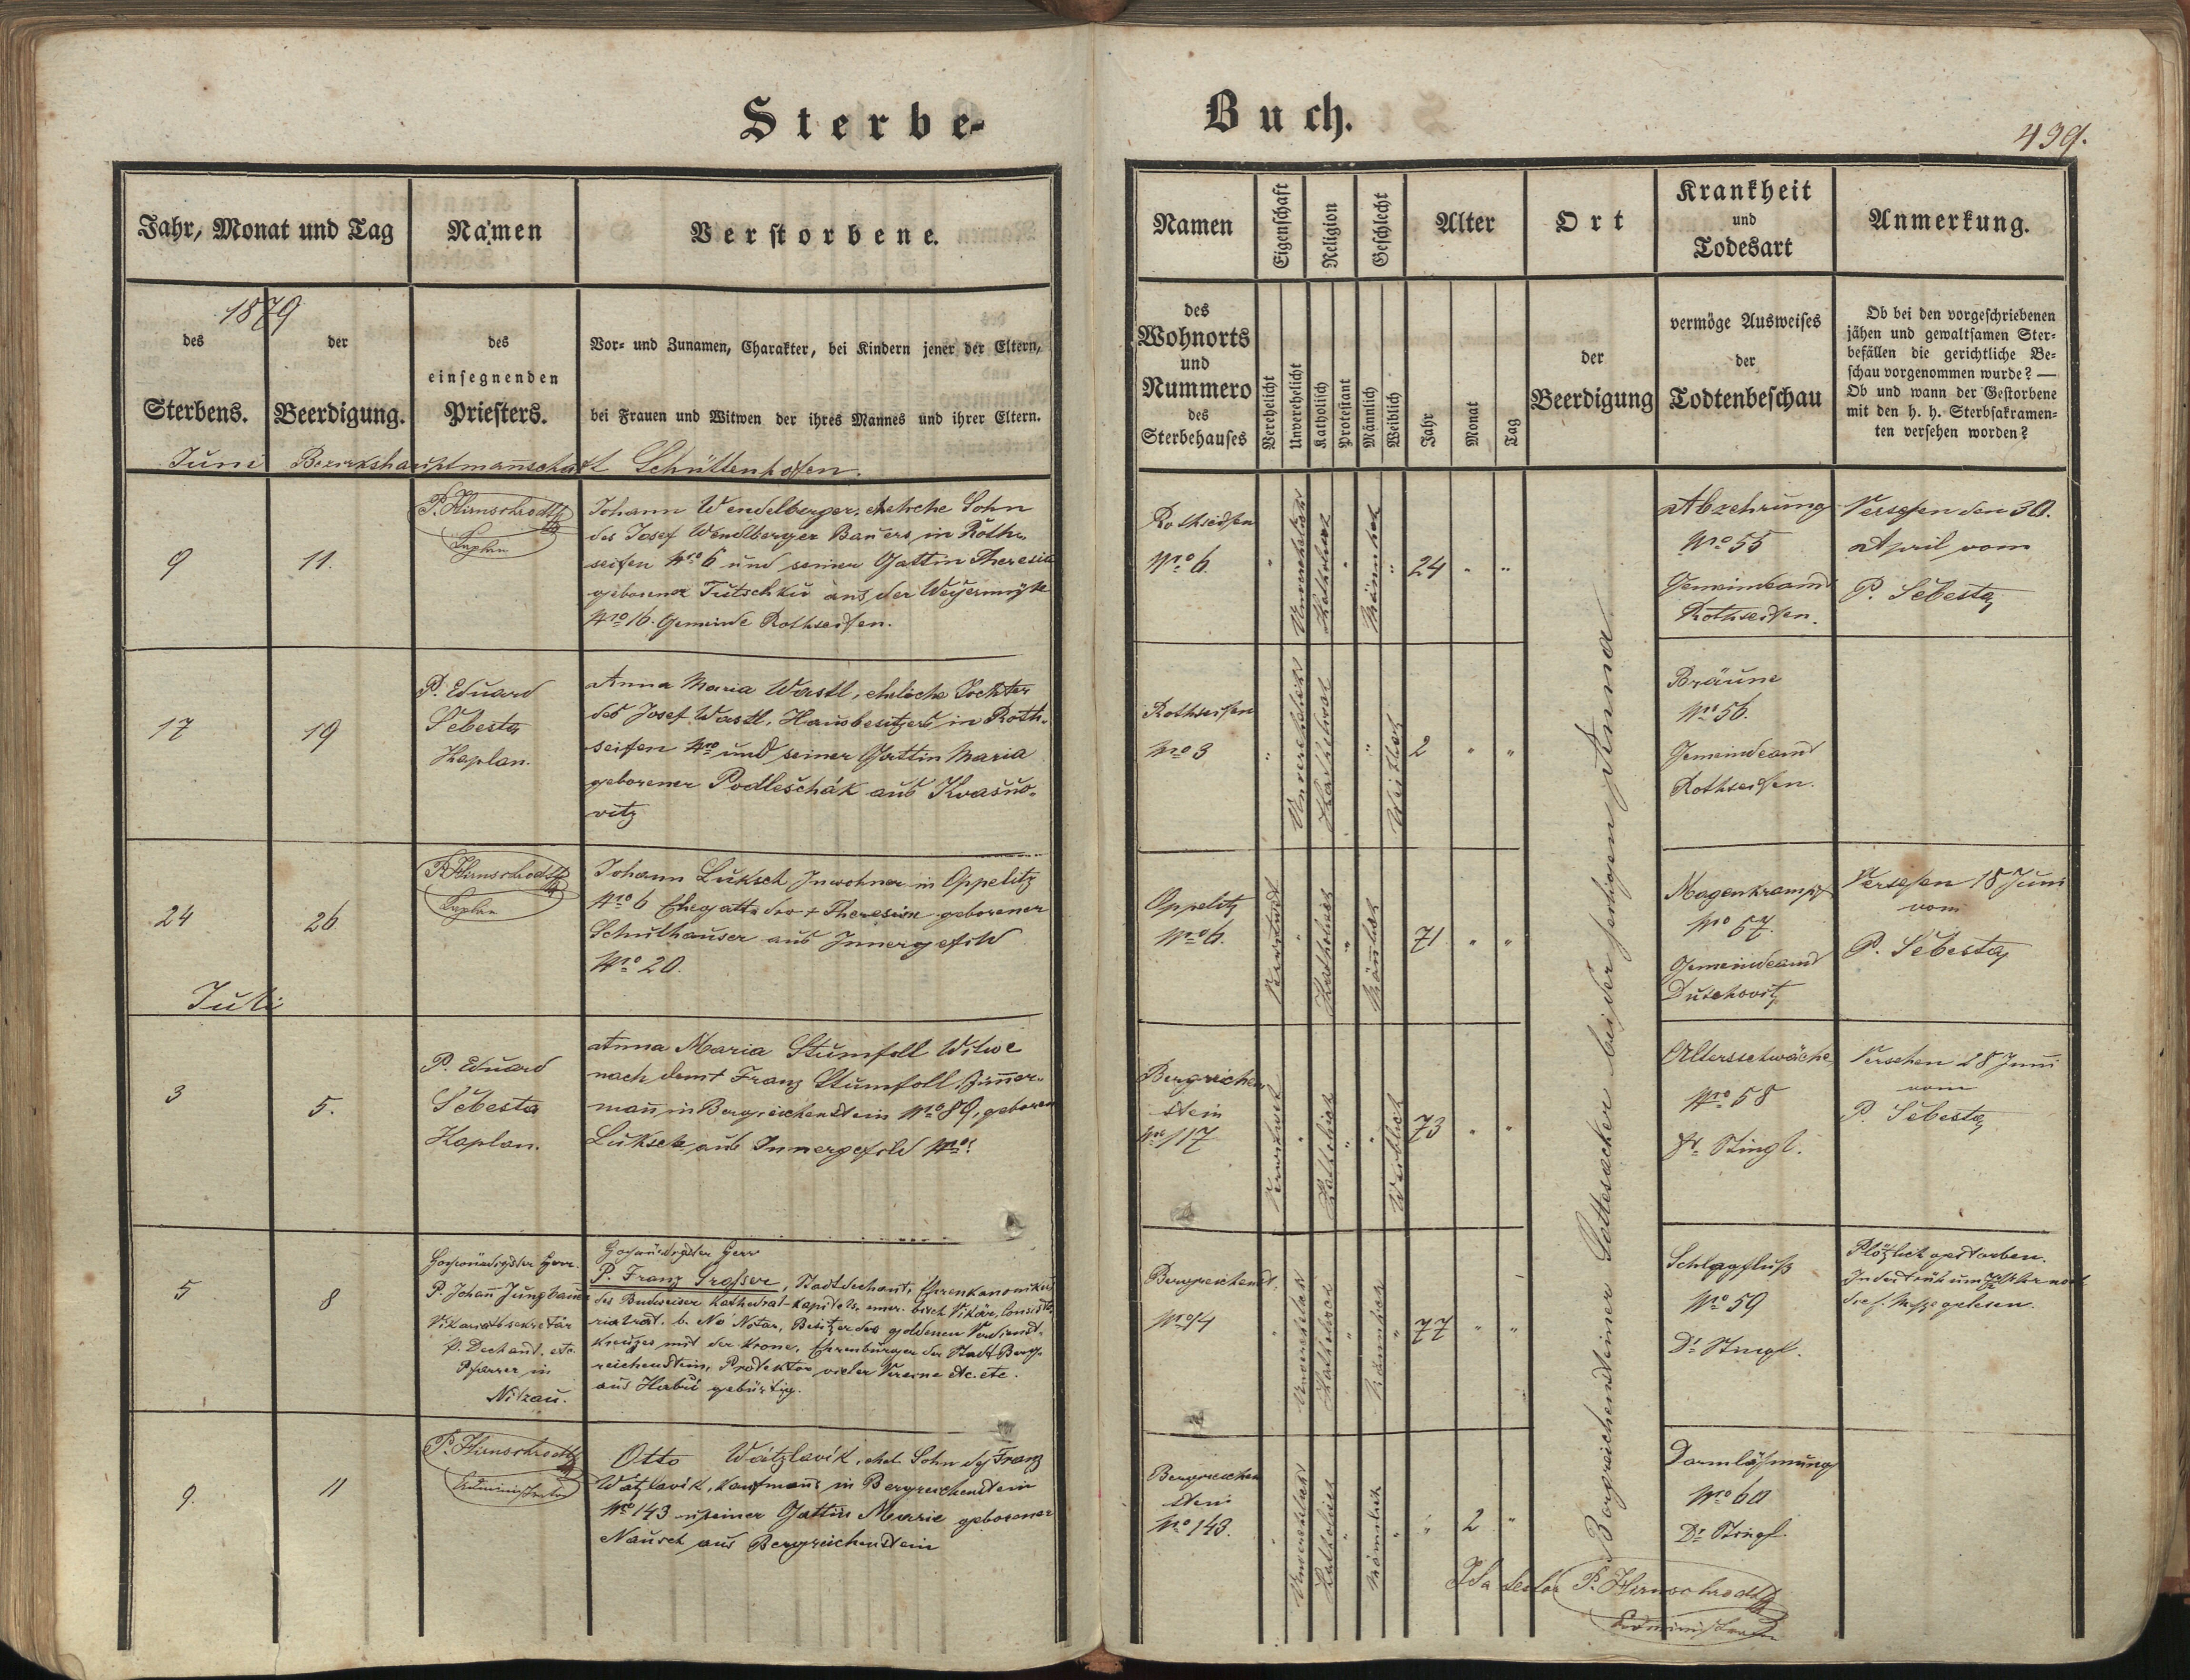 Sterbe-
Buch.
439.
Jahr, Monat und Tag
Namen
Verstorbene.
1879
des
Sterbens.
der
Beerdigung.
des
einsegnenden
Priesters.
Vor- und Zunamen, Charakter, bei Kindern jener der Eltern,
bei Frauen und Witwen der ihres Mannes und ihrer Eltern.
Namen
Eigenschaft
Religion
Geschlecht
Alter
Ort
Krankheit
und
Todesart
Anmerkung.
des
Wohnorts
und
Nummero
des
Sterbehauses
Verehelicht
Unverehelicht
Katholisch
Protestant
Männlich
Weiblich
Jahr
Monat
Tag
der
Beerdigung
vermöge Ausweises
der
Todtenbeschau
Ob bei den vorgeschriebenen
jähen und gewaltsamen Ster-
befällen die gerichtliche Be-
schau vorgenommen wurde? —
Ob und wann der Gestorbene
mit den h. h. Sterbsakramen-
ten versehen worden?
Juni Bezirkshauptmannschaft Schüttenhofen.
9
11.
P. Hirnschrodt
Kaplan
Johann Wendelberger, eheliche Sohn
des Josef Wendlberger Bauers in Roth-
seifen Nro 6 und seiner Gattin Theresia
geborener Tutschku aus der
Nro 16. Gemeinde Rothseifen.
Rothseifen
Nro 6.
" Unverehelicht Katholisch " Männlich "
24 " "
Abzehrung
Nro 55
Gemeindeamt
Rothseifen.
Versehen den 30.
April vom
P. Šebesta
17
19
P. Eduard
Šebesta
Kaplan.
Anna Maria Wastl, eheliche Tochter
des Josef Wastl, Hausbesitzers in Roth-
seifen Nro und seiner Gattin Maria
geborener Podleschák aus Kvasno-
vitz
Rothseifen
Nro 3
" Unverehelicht Katholisch " Weiblich
2 " "
Bräune
Nro 56.
Gemeindeamt
Rothseifen.
24
26.
P. Hirnschrodt
Kaplan
Johann Luksch Inwohner in Oppelitz
Nro 6 Ehegatte der + Theresia geborener
Schulhauser aus Innergefild
Nro 20.
Oppelitz
Nro 6.
Verwitwet " Katholisch " Männlich
71 " "
Magenkrampf
Nro 57.
Gemeindeamt
Duschowitz
Versehen 18 Juni
vom
P. Šebesta
Juli
3
5.
P. Eduard
Šebesta
Kaplan.
Anna Maria Stumfoll Witwe
nach dem + Franz Stumfoll Zimmer-
mann in Bergreichenstein Nro 89, geboren
Luksch aus Innergefild Nro
Bergreichen
stein
Nro 117
Verwitwet " Katholisch " " Weiblich
73 " "
Altersschwäche
Nro 58
Dr. Stingl.
Versehen 28 Juni
vom
P. Šebesta
5
8
Hochwürdigster Herr
P. Johann Jungbauer
Vikariatssekretär
P. Dechant. etc.
Pfarrer in
Nitzau.
Hochwürdigster Herr
P. Franz Grasser, Stadtdechant, Ehrenkanonikus
des Budweiser Kathedral-Kapitels, emer. bisch Vikär, Consisto-
rialrat. b. Notar, Besitzer des goldenen Verdienst-
kreuzes mit der Krone, Ehrenbürger der Stadt Berg-
reichenstein, Protektor vieler Vereine etc. etc.
aus Habří gebürtig.
Bergreichenst
Nro 4
" Unverehelicht Katholisch " Männlich "
77 " "
Schlagfluß
Nro 59
Dr Stingl.
Plötzlich gestorben.
In der früh um Uhr noch
die h. Messe gelesen.
9.
11
P. Hirnschrodt
Administrator
Otto Watzlavik, ehel. Sohn des Franz
Watzlavik, Kaufmanns in Bergreichenstein
Nro 143 u seiner Gattin Marie geborener
Nausch aus Bergreichenstein
Bergreichen
stein
Nro 143.
" Unverehelicht Katholisch " Männlich "
" 2 "
Darmlähmung
Nro 60
Dr Stingl
Bergreichensteiner Gottesacker bei der heiligen Anna
Ita testor P. Hirnschrodt
Administrator